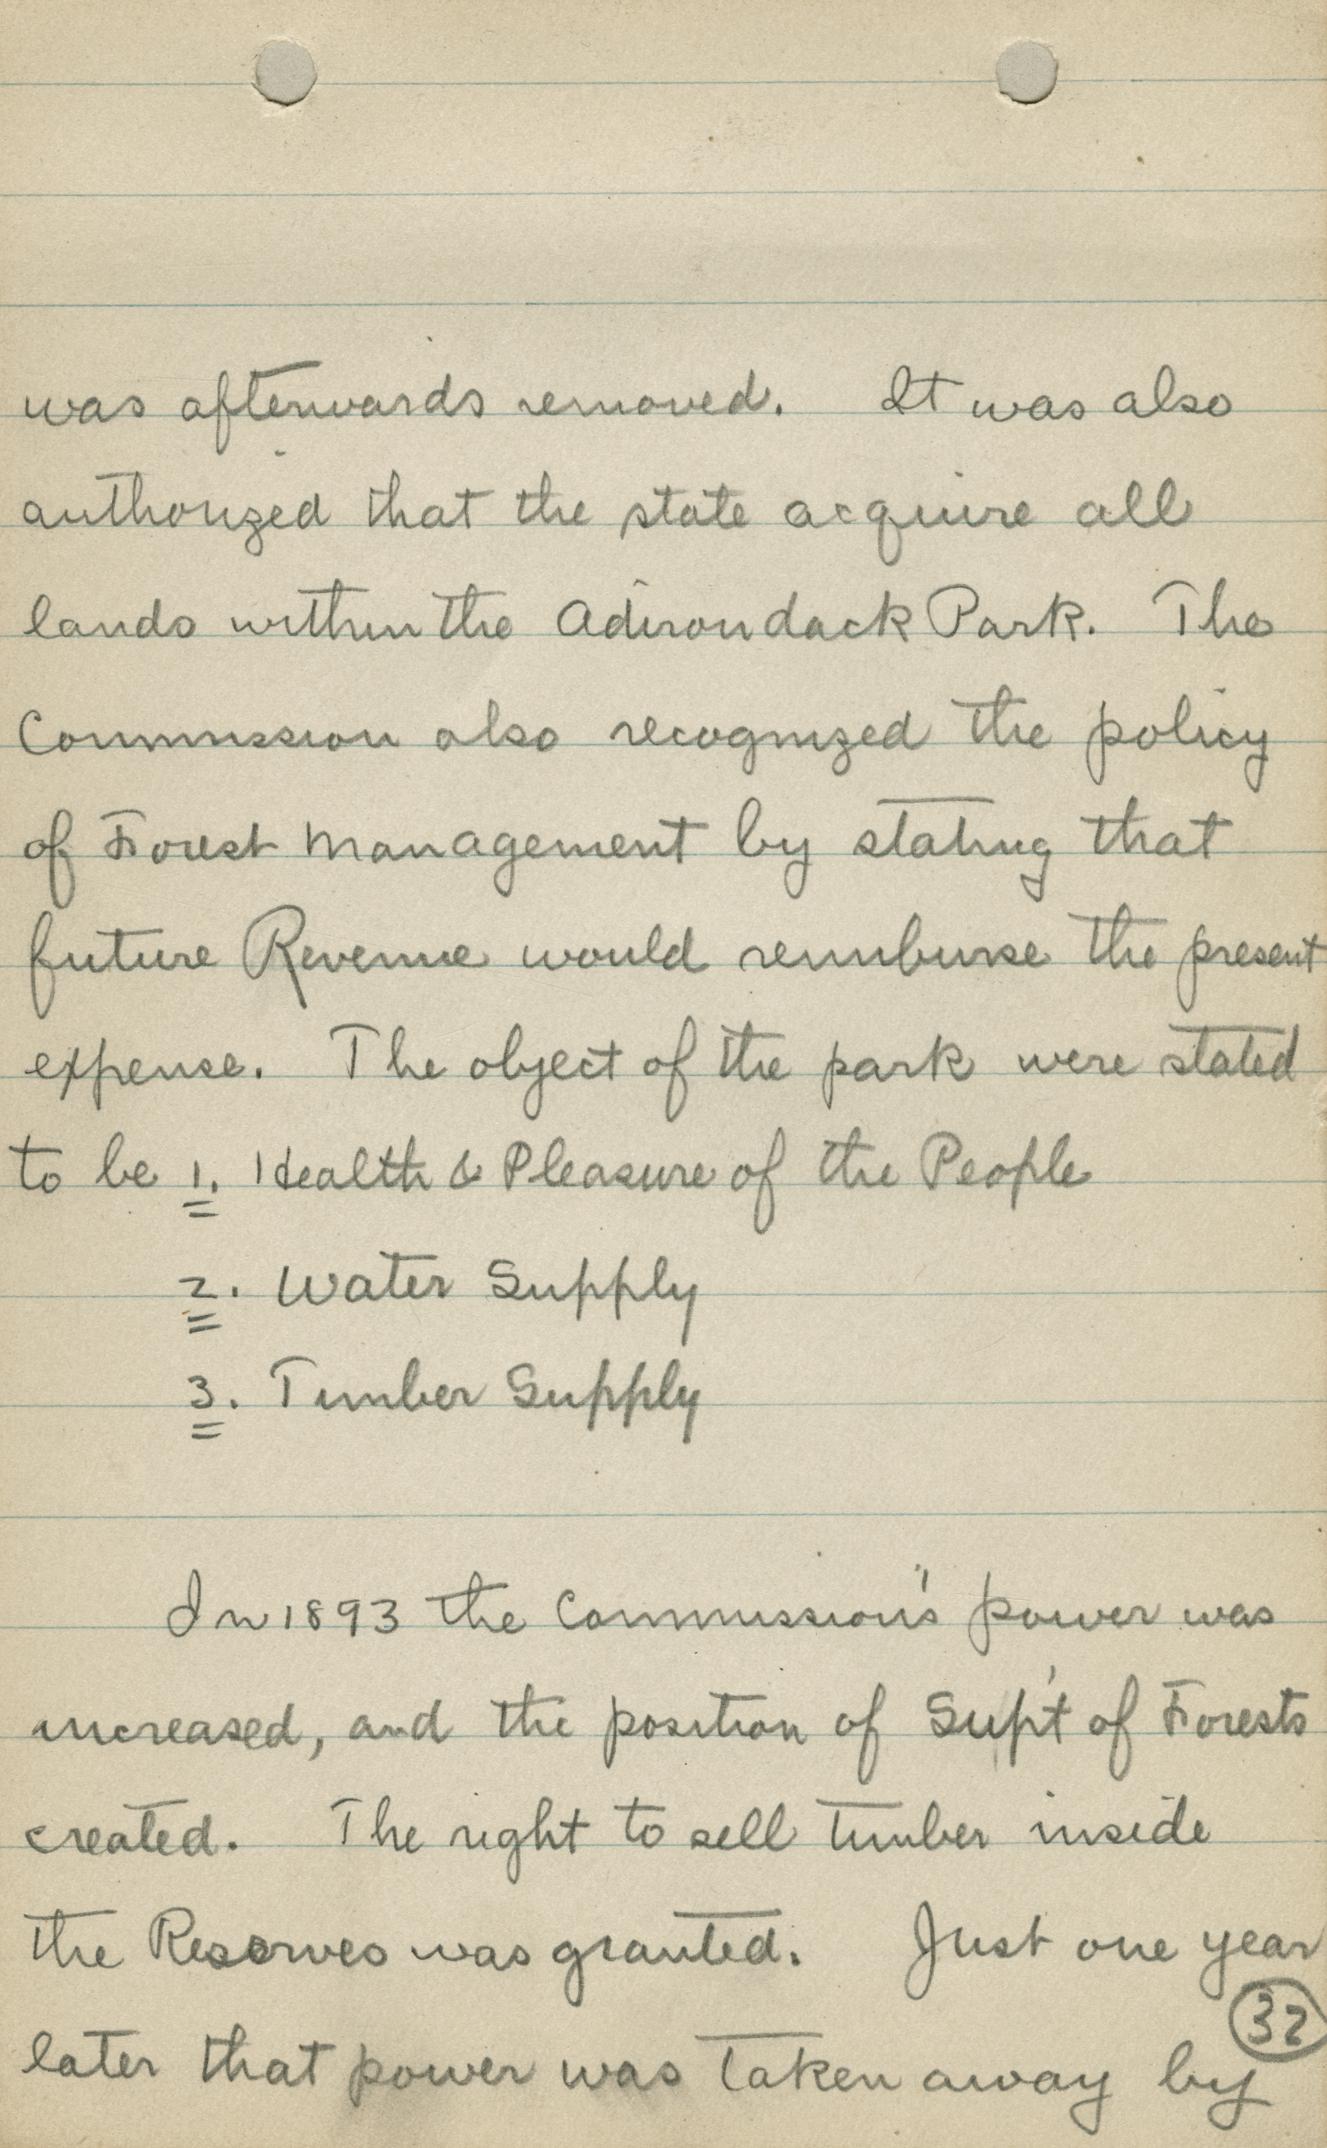 was afterwards removed. It was also
authorized that the state acquire all
lands within the Adirondack Park. The
Commission also recognized the policy
of Forest Management by stating that
future Revenue would reimburse the present
expense. The object of the park were stated
to be 1. Health & Pleasure of the People
2. Water Supply
3. Timber Supply
In 1893 the Commission's power was
increased, and the position of Sup't of Forests
created. The right to sell timber inside
the Reserves was granted. Just one year
32
later that power was taken away by